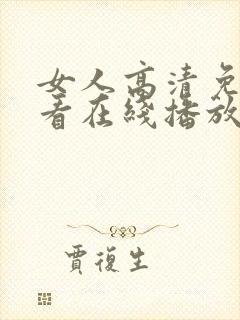 女人高清免
看在綫播放
賈復生